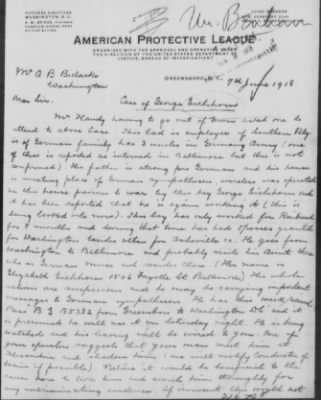 NATIONAL DIRECTORS
WASHINGTON, D.C.
AMERICAN PROTECTIVE LEAGUE
ORGANIZED WITH THE APPROVAL AND OPERATING UNDER
THE DIRECTION OF THE UNITED STATES DEPARTMENT OF
JUSTICE, BUREAU OF INVESTIGATION
GREENSBORO, N.C. 7th June 1918
Mr A B Bielaski
Washington
Dear Sir. Case of George Eichhorn
Mr. Handy having to go out of town asked me to
attend to above Case. This lad is employee of Southern Rly
is of German family has 3 uncles in Germany Army (one
of this is reported as interned in Baltimore but this is not
confirmed) His father is strong pro German and his house
is meeting place of German sympathisers. wireless was operated
in this house previous to war by this boy George Eichhorn and
it has been reported that he is again working it (this is
being looked into now). This boy has only worked for Railroad
for 4 months and during that time has had passes granted
for Washington besides other for Asheville. He goes from
Washington to Baltimore and probably visits his Aunt there
who is German nurse and resides there (Her name is
Elizabeth Eichhorn 1806 Fayette St Baltimore) His whole
actions are suspicious and he may be carrying important
messages to German sympathisers. He has this week secured
Pass from Greensboro to Washington DC and it
is presumed he will use it on Saturday night. He is being
watched and his leaving will be wired to you. One of
your operators suggests that your man meet him at
Alexandria and shadow him (we will notify Conductor of
train if possible). Believe it would be beneficial to the
case here to take him and search him thoroughly for
any incriminating evidence. If innocent this would not